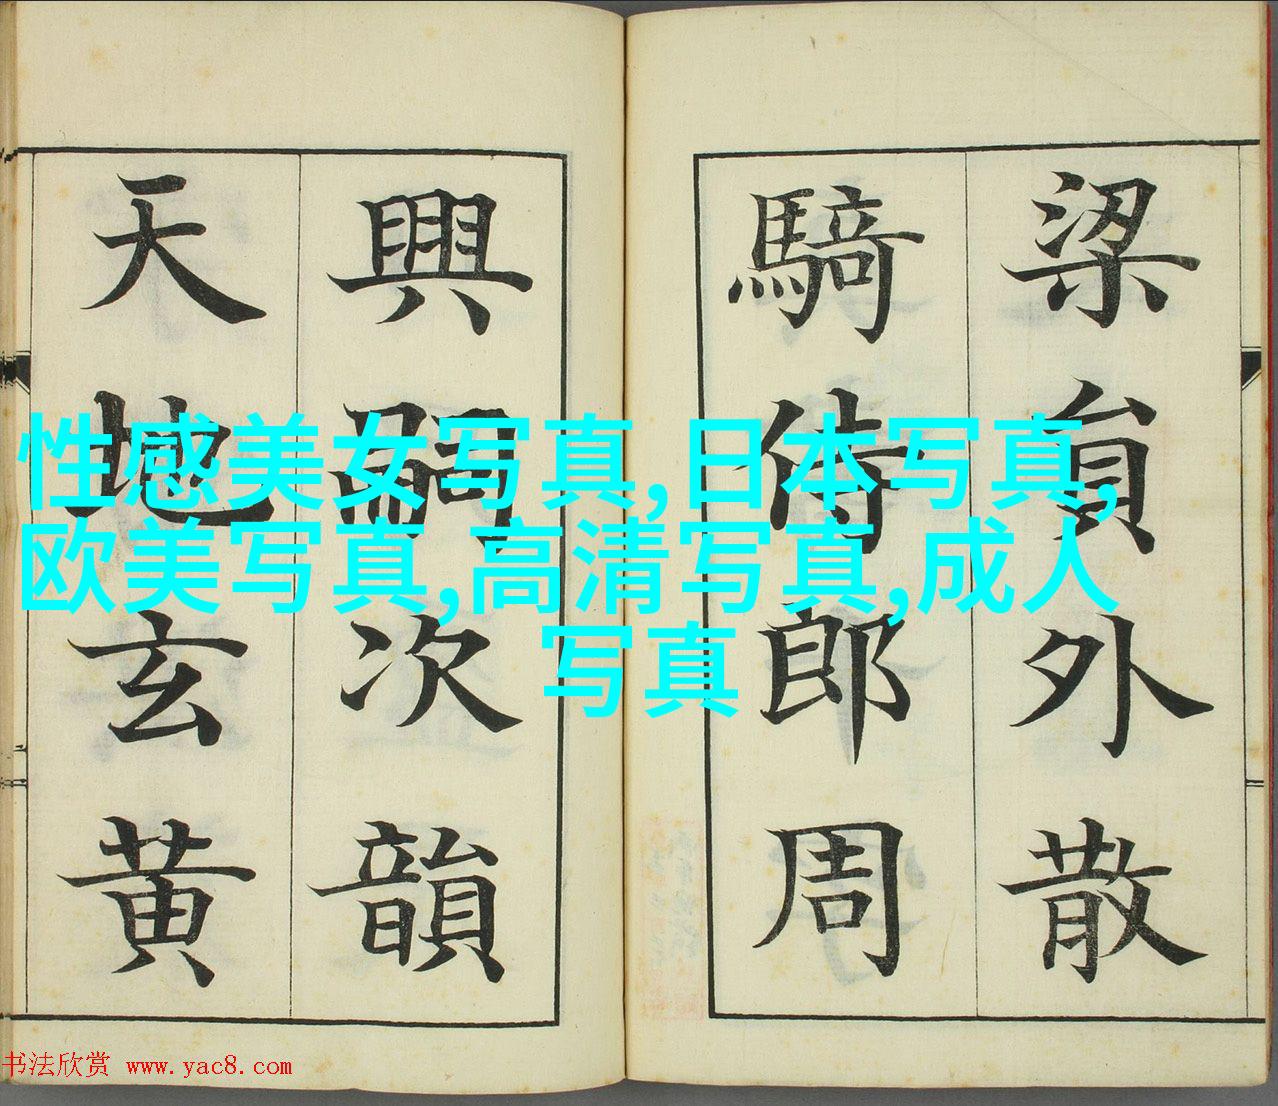 梁貟外散
騎侍郎周
興嗣次韻
天地玄黃
性感美女写真,日本写真,
欧美写真,高清写真,成人
写真
书法欣赏 www.yac8.com